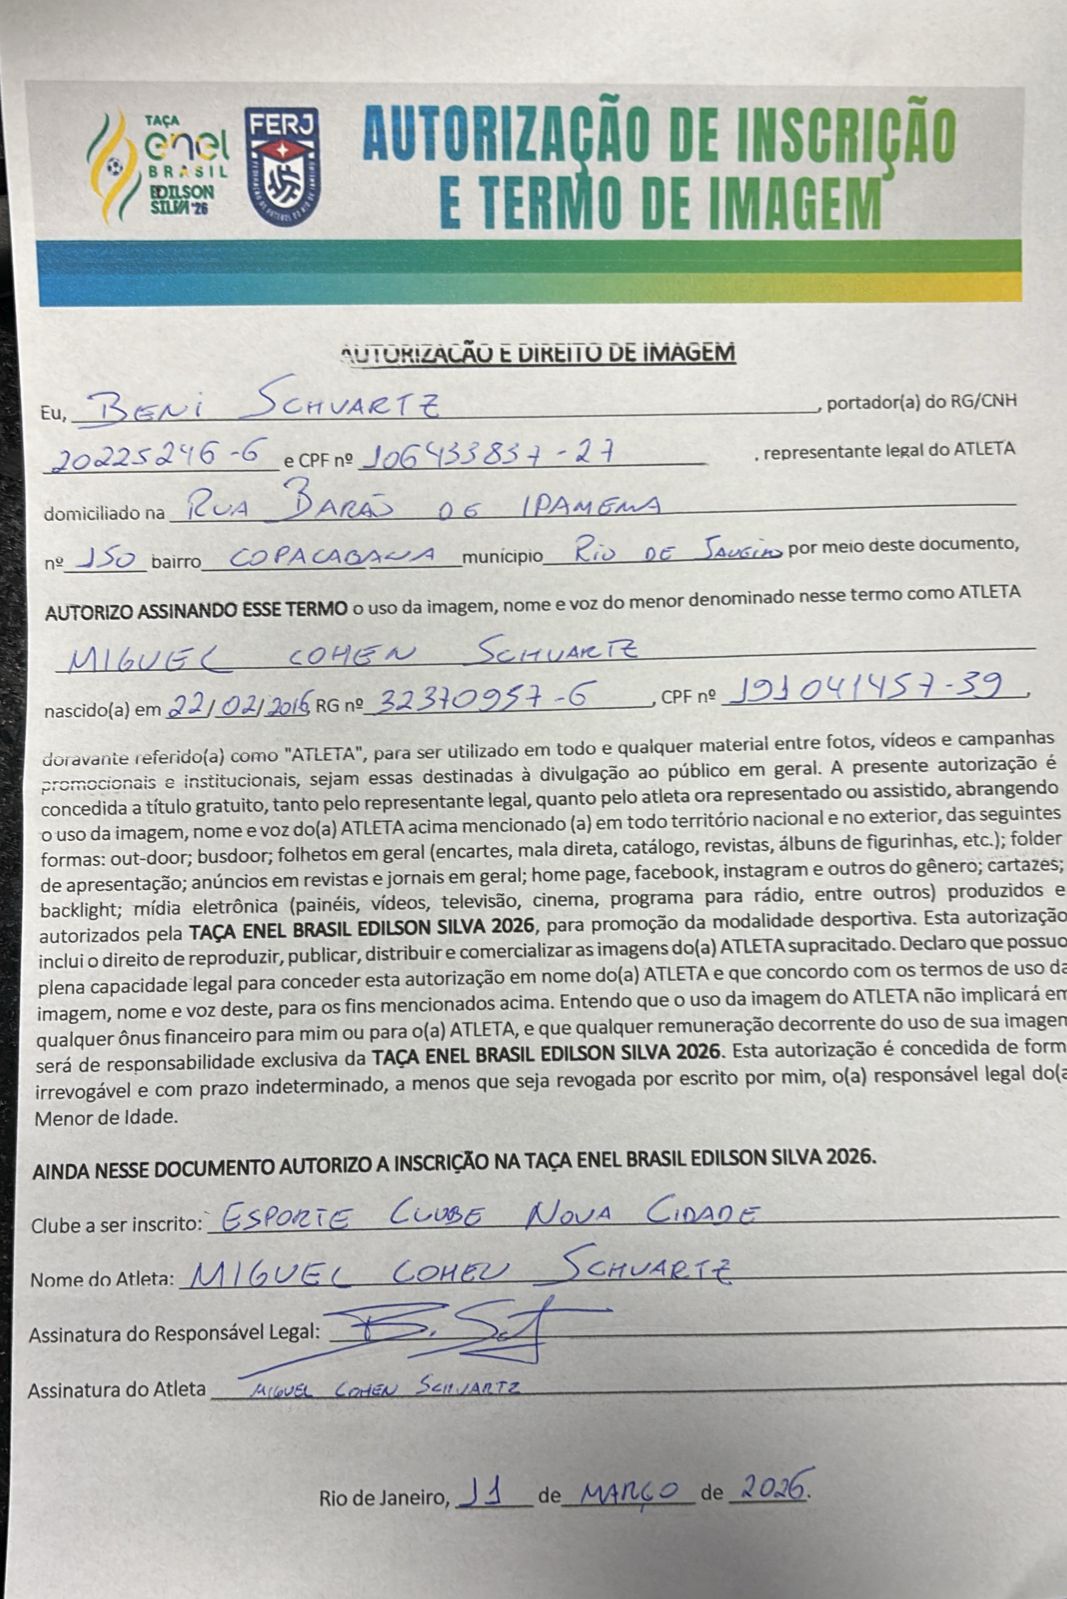 TAÇA
enel
BRASIL
EDILSON
SILVA '26
FERJ
FEDERAÇÃO DE FUTEBOL DO RIO DE JANEIRO
AUTORIZAÇÃO DE INSCRIÇÃO
E TERMO DE IMAGEM
AUTORIZAÇÃO E DIREITO DE IMAGEM
Eu, BENI SCHVARTZ, portador(a) do RG/CNH
20225246-6 e CPF nº 106433837-27, representante legal do ATLETA
domiciliado na RUA BARÃO DE IPANEMA
nº 150 bairro COPACABANA município RIO DE JANEIRO por meio deste documento,
AUTORIZO ASSINANDO ESSE TERMO o uso da imagem, nome e voz do menor denominado nesse termo como ATLETA
MIGUEL COHEN SCHVARTZ
nascido(a) em 22/02/2016 RG nº 32370957-6, CPF nº 191041457-39,
doravante referido(a) como "ATLETA", para ser utilizado em todo e qualquer material entre fotos, vídeos e campanhas
promocionais e institucionais, sejam essas destinadas à divulgação ao público em geral. A presente autorização é
concedida a título gratuito, tanto pelo representante legal, quanto pelo atleta ora representado ou assistido, abrangendo
o uso da imagem, nome e voz do(a) ATLETA acima mencionado (a) em todo território nacional e no exterior, das seguintes
formas: out-door; busdoor; folhetos em geral (encartes, mala direta, catálogo, revistas, álbuns de figurinhas, etc.); folder
de apresentação; anúncios em revistas e jornais em geral; home page, facebook, instagram e outros do gênero; cartazes;
backlight; mídia eletrônica (painéis, vídeos, televisão, cinema, programa para rádio, entre outros) produzidos e
autorizados pela TAÇA ENEL BRASIL EDILSON SILVA 2026, para promoção da modalidade desportiva. Esta autorização
inclui o direito de reproduzir, publicar, distribuir e comercializar as imagens do(a) ATLETA supracitado. Declaro que possuo
plena capacidade legal para conceder esta autorização em nome do(a) ATLETA e que concordo com os termos de uso da
imagem, nome e voz deste, para os fins mencionados acima. Entendo que o uso da imagem do ATLETA não implicará em
qualquer ônus financeiro para mim ou para o(a) ATLETA, e que qualquer remuneração decorrente do uso de sua imagem
será de responsabilidade exclusiva da TAÇA ENEL BRASIL EDILSON SILVA 2026. Esta autorização é concedida de form
irrevogável e com prazo indeterminado, a menos que seja revogada por escrito por mim, o(a) responsável legal do(a
Menor de Idade.
AINDA NESSE DOCUMENTO AUTORIZO A INSCRIÇÃO NA TAÇA ENEL BRASIL EDILSON SILVA 2026.
Clube a ser inscrito: ESPORTE CLUBE NOVA CIDADE
Nome do Atleta: MIGUEL COHEN SCHVARTZ
Assinatura do Responsável Legal:
Assinatura do Atleta MIGUEL COHEN SCHVARTZ
Rio de Janeiro, 11 de MARÇO de 2026.